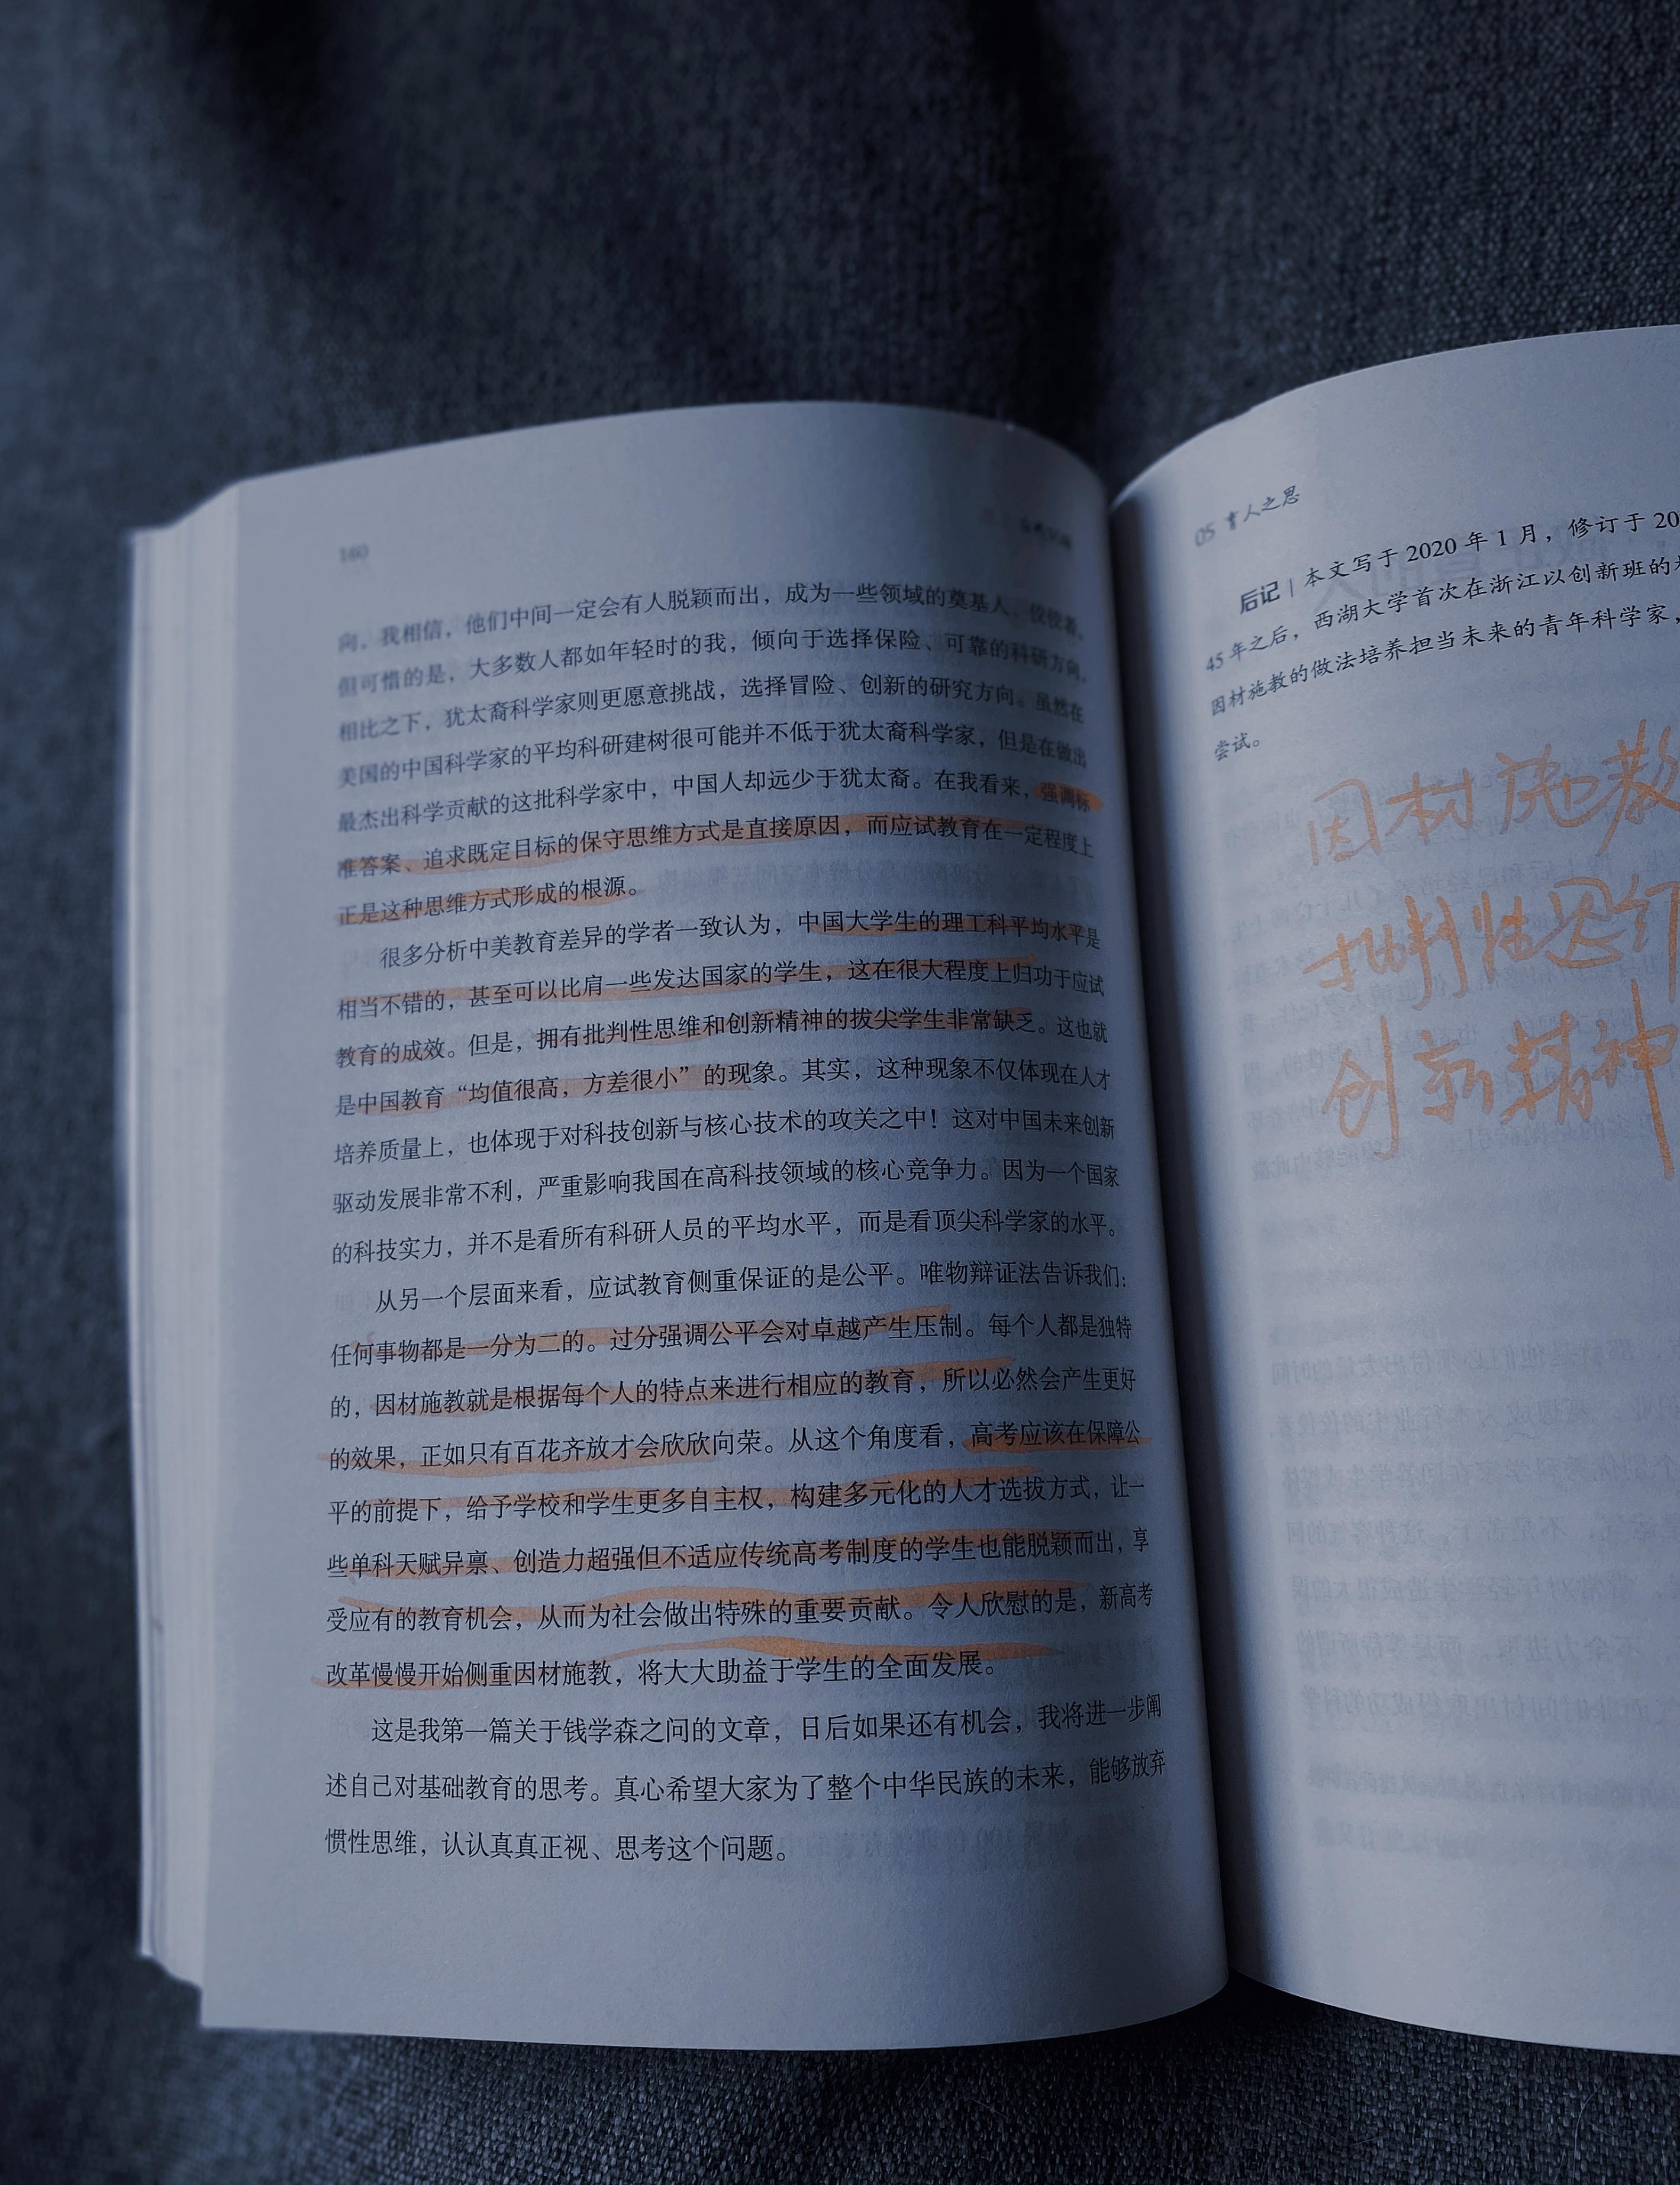 160
向，我相信，他们中间一定会有人脱颖而出，成为一些领域的奠基人、佼佼者，
但可惜的是，大多数人都如年轻时的我，倾向于选择保险、可靠的科研方向。
相比之下，犹太裔科学家则更愿意挑战，选择冒险、创新的研究方向。虽然在
美国的中国科学家的平均科研建树很可能并不低于犹太裔科学家，但是在做出
最杰出科学贡献的这批科学家中，中国人却远少于犹太裔。在我看来，强调标
准答案、追求既定目标的保守思维方式是直接原因，而应试教育在一定程度上
正是这种思维方式形成的根源。
很多分析中美教育差异的学者一致认为，中国大学生的理工科平均水平是
相当不错的，甚至可以比肩一些发达国家的学生，这在很大程度上归功于应试
教育的成效。但是，拥有批判性思维和创新精神的拔尖学生非常缺乏。这也就
是中国教育“均值很高，方差很小”的现象。其实，这种现象不仅体现在人才
培养质量上，也体现于对科技创新与核心技术的攻关之中！这对中国未来创新
驱动发展非常不利，严重影响我国在高科技领域的核心竞争力。因为一个国家
的科技实力，并不是看所有科研人员的平均水平，而是看顶尖科学家的水平。
从另一个层面来看，应试教育侧重保证的是公平。唯物辩证法告诉我们：
任何事物都是一分为二的。过分强调公平会对卓越产生压制。每个人都是独特
的，因材施教就是根据每个人的特点来进行相应的教育，所以必然会产生更好
的效果，正如只有百花齐放才会欣欣向荣。从这个角度看，高考应该在保障公
平的前提下，给予学校和学生更多自主权，构建多元化的人才选拔方式，让一
些单科天赋异禀、创造力超强但不适应传统高考制度的学生也能脱颖而出，享
受应有的教育机会，从而为社会做出特殊的重要贡献。令人欣慰的是，新高考
改革慢慢开始侧重因材施教，将大大助益于学生的全面发展。
这是我第一篇关于钱学森之问的文章，日后如果还有机会，我将进一步阐
述自己对基础教育的思考。真心希望大家为了整个中华民族的未来，能够放弃
惯性思维，认认真真正视、思考这个问题。
05 育人之思
后记｜本文写于 2020 年 1 月，修订于 20
45 年之后，西湖大学首次在浙江以创新班的
因材施教的做法培养担当未来的青年科学家，
尝试。
因材施教
批判性思
创新精神